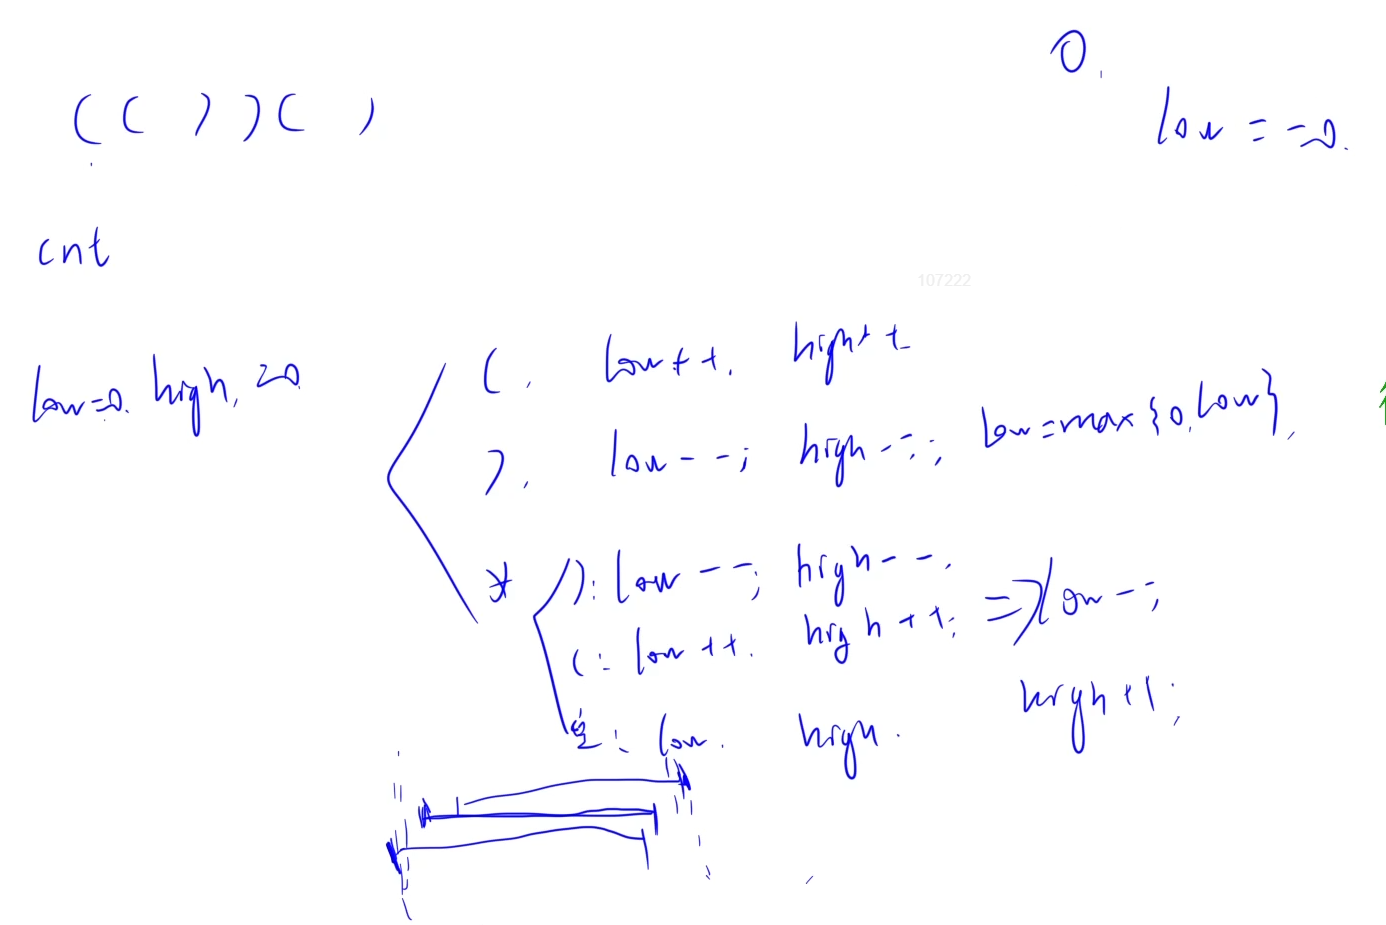 0.
( ( ) ) ( )
low = =0.
cnt
107222
( . low++. high++
low=0. high, =0.
) . low--; high--; low=max{0,low},
* ): low--; high--. => low-;
(: low++. high++;
空: low. high. high+1;